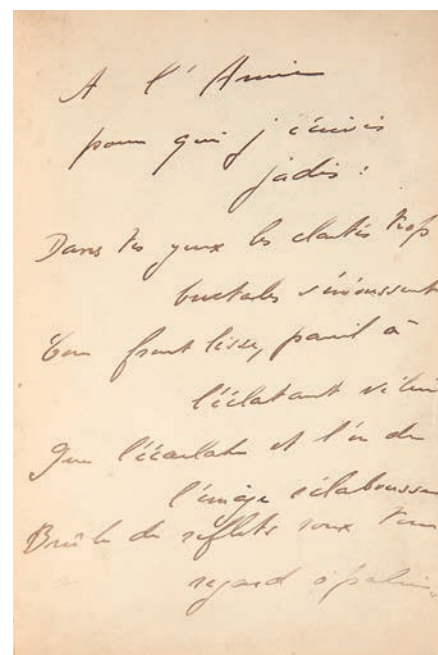 A l'Amie
pour qui j'écrivis
jadis :
Dans tes yeux les clartés trop
brutales s'émoussent
Ton front lisse, pareil à
l'éclatant vélin
Que l'écarlate et l'or de
l'image éclaboussent
Brûle de reflets roux ton
regard opalin.